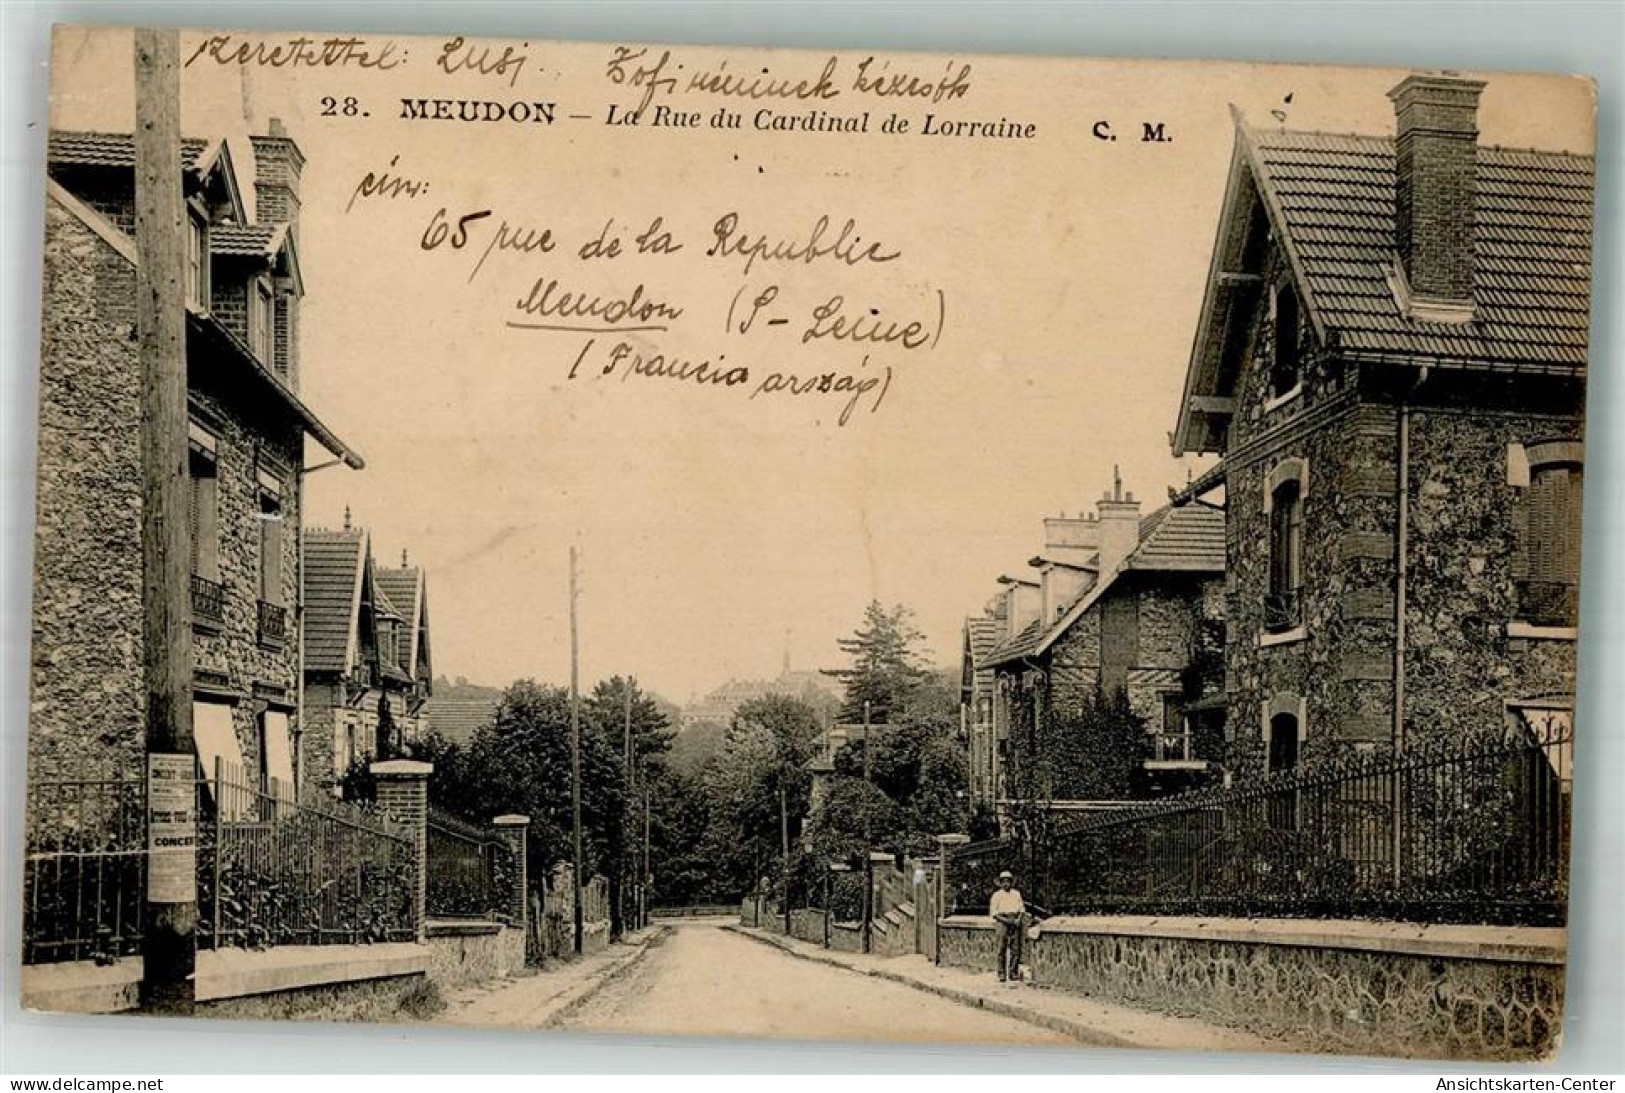 szeretettel: Lusj.. Zsófi néninek kézcsók
28. MEUDON — La Rue du Cardinal de Lorraine C. M.
cím:
65 rue de la Republic
Meudon (S-Seine)
(Francia ország)
CONCERT
Ansichtskarten-Center